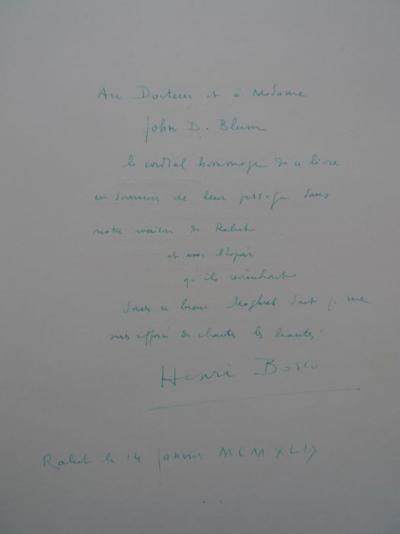 Au Docteur et à Madame
John D. Blum
le cordial hommage de ce livre
en souvenir de leur passage dans
notre maison de Rabat
et avec l'espoir
qu'ils reviendront
dans ce beau Maghreb dont je me
suis efforcé de chanter les beautés.
Henri Bosco
Rabat le 14 janvier